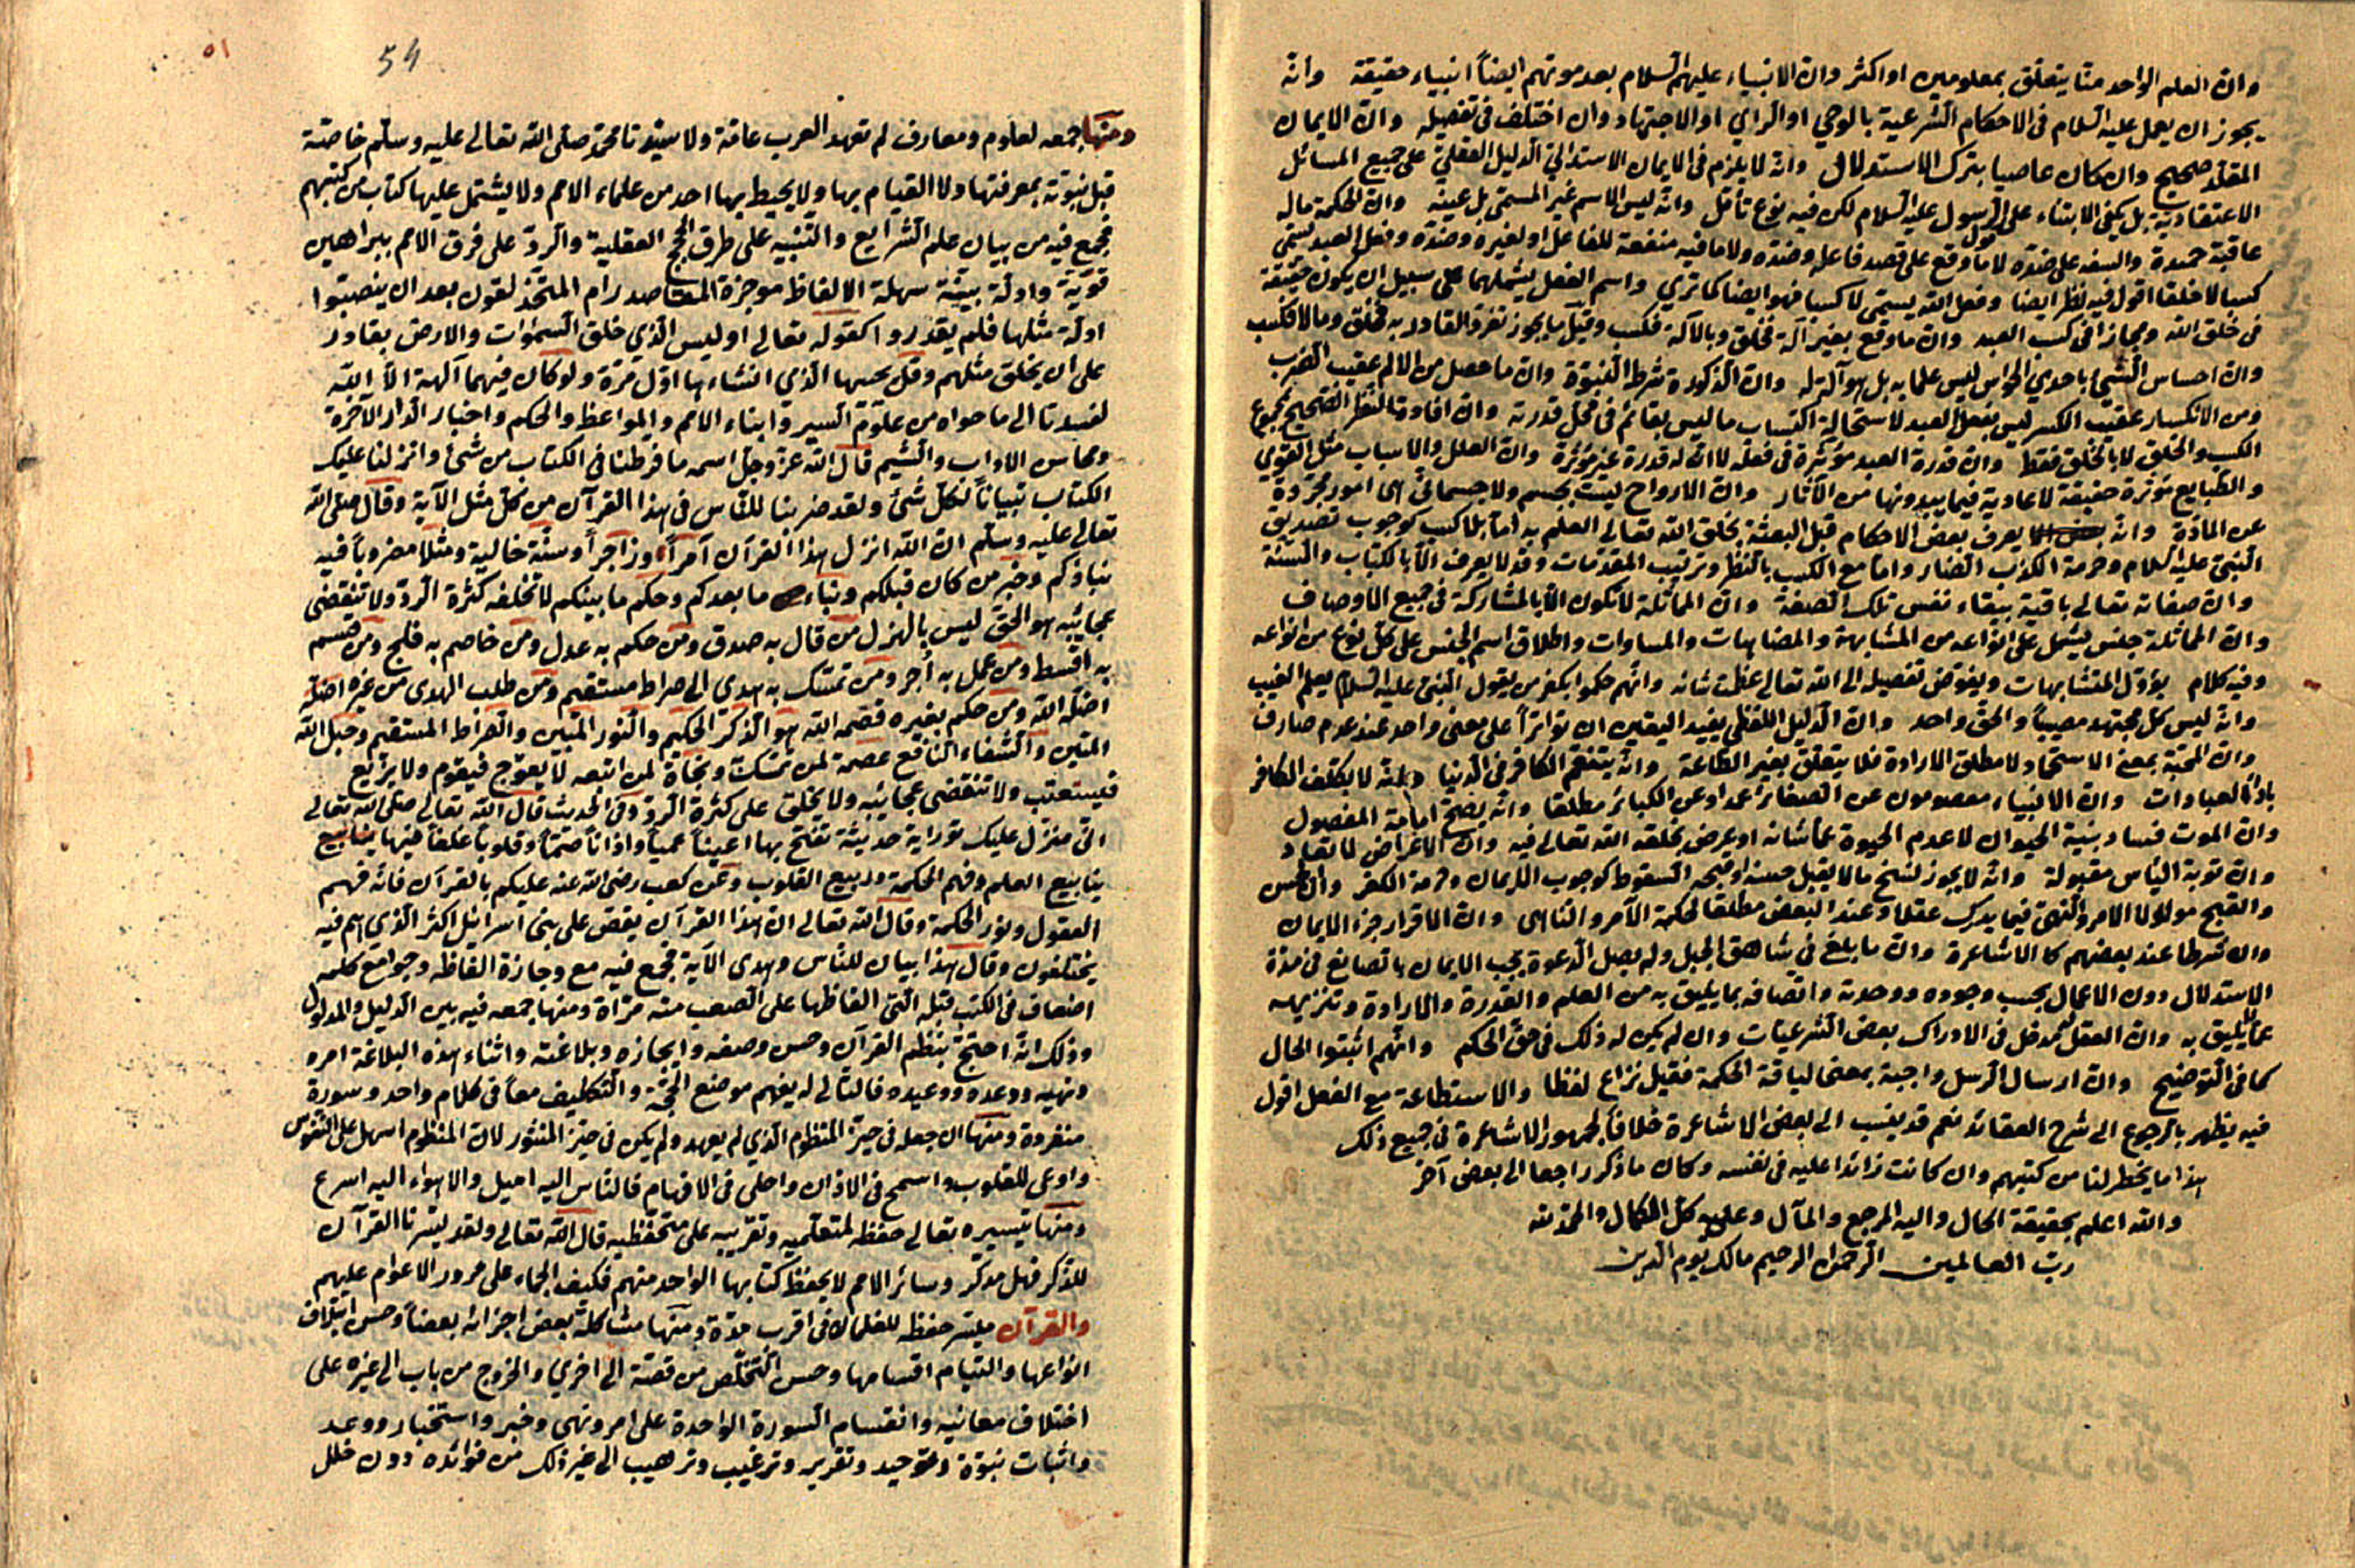 وان العلم الواحد منا يتعلق بمعلومين او اكثر وان الانبياء عليهم السلام بعد موتهم ايضاً انبياء حقيقة وانه
يجوز ان يعمل عليه السلام فى الاحكام الشرعية بالوحي او الراي او الاجتهاد وان اختلف فى تفصيله وان الايمان
المقلد صحيح وان كان عاصيا بترك الاستدلال وانه لا يلزم فى الايمان الاستدلالي الدليل العقلي على جميع المسائل
الاعتقادية بل يكفي الابتناء على الرسول عليه السلام لكن فيه نوع تأمل وانه ليس الاسم غير المسمى بل عينه وان الحكمة ماله
عاقبة حميدة والسفه على ضده لا ما وقع على قصد فاعله وضده ولا ما فيه منفعة للفاعل او لغيره وضده وفعل العبد يسمى
كسبا لا خلقا اقول فيه نظر ايضا وفعل الله يسمى لا كسبا فهو ايضا كما تري واسم الفعل يشملهما على سبيل ان يكون حقيقة
فى خلق الله ومجازا فى كسب العبد وان ما وقع بغير آلة فخلق وبالآلة فكسب وقيل ما يجوز تفرد القادر به فخلق وما لا فكسب
وان احساس الشئ باحدي الحواس ليس علما به بل هو آلة له وان الذكورة شرط النبوة وان ما حصل من الالم عقيب الضرب
ومن الانكسار عقيب الكسر ليس بفعل العبد لاستحالة اكتساب ما ليس بقائم فى محل قدرته وان افادة النظر الصحيح بمجموع
الكسب والخلق لا بالخلق فقط وان قدرة العبد مؤثرة فى فعله لا ان له قدرة غير مؤثرة وان العلل والاسباب مثل القوي
والطبايع مؤثرة حقيقة لا عادية فيما يبدو منها من الآثار وان الارواح ليست بجسم ولا جسماني بل هى امور مجردة
عن المادة وانه يعرف بعض الاحكام قبل البعثة بخلق الله تعالى العلم به اما بلا كسب كوجوب تصديق
النبي عليه السلام وحرمة الكذب الضار واما مع الكسب بالنظر وترتيب المقدمات وقد لا يعرف الا بالكتاب والسنة
وان صفاته تعالى باقية ببقاء نفس تلك الصفة وان المماثلة لا تكون الا بالمشاركة فى جميع الاوصاف
وان المماثلة جنس يشتمل على انواعه من المشابهة والمضاهات والمساوات واطلاق اسم الجنس على كل نوع من انواعه
وفيه كلام يؤول المتشابهات ويفوض تفصيله الى الله تعالى عظمت شانه وانهم حكموا بكفر من يقول النبي عليه السلام يعلم الغيب
وانه ليس كل مجتهد مصيباً والحق واحد وان الدليل اللفظي يفيد اليقين ان تواتراً على معنى واحد عند عدم صارف
وان المحبة بمعنى الاستحماد لا مطلق الارادة فلا يتعلق بغير الطاعة وانه يتنعم الكافر فى الدنيا وانه لا يكلف الكافر
باداء العبادات وان الانبياء معصومون عن الصغائر عمداً وعن الكبائر مطلقا وانه يصح امامة المفضول
وان الموت فساد بنية الحيوان لا عدم الحيوة عما شانه او عرض يخلقه الله تعالى فيه وان الاعراض لا تعاد
وان توبة الياس مقبولة وانه لا يجوز نسخ ما لا يقبل حسنه او قبحه السقوط كوجوب الايمان وحرمة الكفر وان الحسن
والقبح مدلولا الامر والنهي فيما يدرك عقلا وعند البعض مطلقا لحكمة الآمر والناهي وان الاقرار جزء الايمان
وان شرطا عند بعضهم كالاشاعرة وان ما بلغ في شاهق الجبل ولم يصل الدعوة يجب الايمان بالصانع فى مدة
الاستدلال دون الاعمال بحسب وجوده ووحدته واتصافه بما يليق به من العلم والقدرة والارادة وتنزيهه
عما لا يليق به وان العقل مدخل فى الادراك بعض الشرعيات وان لم يكن له ذلك فى حق الحكم وانهم اثبتوا الحال
كما فى التوضيح وان ارسال الرسل واجبة بمعنى لياقة الحكمة فقيل نزاع لفظا والاستطاعة مع الفعل اقول
فيه يظهر بالرجوع الى شرح العقائد نعم قد ينسب الى بعض الاشاعرة خلافاً لجمهور الاشاعرة فى جميع ذلك
هذا ما يخطر لنا من كتبهم وان كانت زائدا عليه فى نفسه وكان ما ذكر راجعا الى بعض آخر
والله اعلم بحقيقة الحال واليه المرجع والمآل وعليه كل الكمال والحمد لله
رب العالمين الرحمن الرحيم مالك يوم الدين
٥١
54
ومنها جمعه لعلوم ومعارف لم تعهد العرب عامة ولا سيدنا محمد صلى الله تعالى عليه وسلم خاصة
قبل نبوته بمعرفتها ولا القيام بها ولا يحيط بها احد من علماء الامم ولا يشتمل عليها كتاب من كتبهم
فجمع فيه من بيان علم الشرايع والتنبيه على طرق الحجج العقلية والرد على فرق الامم ببراهين
قوية وادلة بينة سهلة الالفاظ موجزة المقاصد رام المتحذلقون بعد ان ينصبوا
ادلة مثلها فلم يقدروا كقوله تعالى اوليس الذي خلق السموات والارض بقادر
على ان يخلق مثلهم وقل يحييها الذي انشاءها اول مرة ولو كان فيهما آلهة الا الله
لفسدتا الى ما حواه من علوم السير وانباء الامم والمواعظ والحكم واخبار الدار الآخرة
ومحاسن الاداب والشيم قال الله عز وجل اسمه ما فرطنا فى الكتاب من شئ وانزلنا عليك
الكتاب تبياناً لكل شئ ولقد ضربنا للناس فى هذا القرآن من كل مثل الآية وقال صلى الله
تعالى عليه وسلم ان الله انزل هذا القرآن آمراً وزاجراً وسنة خالية ومثلا مضروباً فيه
نباؤكم وخبر من كان قبلكم ونباء ما بعدكم وحكم ما بينكم لا تخلقه كثرة الرد ولا تنقضى
عجائبه هو الحق ليس بالهزل من قال به صدق ومن حكم به عدل ومن خاصم به فلج ومن قسم
به اقسط ومن عمل به أجر ومن تمسك به هدى الى صراط مستقيم ومن طلب الهدى من غيره اضله
اضله الله ومن حكم بغيره قصمه الله هو الذكر الحكيم والنور المبين والصراط المستقيم وحبل الله
المتين والشفاء النافع عصمة لمن تمسك ونجاة لمن اتبعه لا يعوج فيقوم ولا يزيغ
فيستعتب ولا تنقضى عجائبه ولا يخلق على كثرة الرد وفى الحديث قال الله تعالى صلى الله تعالى
انى منزل عليك توراية حديثة تفتح بها اعيناً عمياً واذاناً صماً وقلوباً غلفاً فيها ينابيع
ينابيع العلم وفهم الحكمة وربيع القلوب وعن كعب رضى الله عنه عليكم بالقرآن فانه فهم
العقول ونور الحكمة وقال الله تعالى ان هذا القرآن يقص على بنى اسرائيل اكثر الذى هم فيه
يختلفون وقال هذا بيان للناس وهدى الآية فجمع فيه مع وجازة الفاظه وجوامع كلمه
اضعاف فى الكتب قبله التى الفاظها على الضعف منه مراة ومنها جمعه فيه بين الدليل والمدلول
وذلك انه احتج بنظم القرآن وحسن وصفه وايجازه وبلاغته واثناء هذه البلاغة امره
ونهيه ووعده ووعيده فالتالى له يفهم موضع الحجة والتكليف معاً فى كلام واحد وسورة
منفردة ومنها ان جعله فى حيز المنظوم الذي لم يعهد ولم يكن فى حيز المنثور لان المنظوم اسهل على النفوس
واوعى للقلوب واسمح فى الاذان واحلى فى الافهام فالناس اليه اميل والاهواء اليه اسرع
ومنها تيسيره تعالى حفظه لمتعلميه وتقريبه على متحفظيه قال الله تعالى ولقد يسرنا القرآن
للذكر فهل مدكر وسائر الامم لا يحفظ كتابها الواحد منهم فكيف الجماء على مرور الاعوام عليهم
والقرآن ميسر حفظه للغلمان فى اقرب مدة ومنها مشاكلة بعض اجزائه بعضاً وحسن ايتلاف
انواعها والتيام اقسامها وحسن التخلص من قصة الى اخري والخروج من باب الى غيره على
اختلاف معانيه وانقسام السورة الواحدة على امر ونهي وخبر واستخبار ووعد
واثبات نبوة وتوحيد وتقرير وترغيب وترهيب الى غير ذلك من فوائده دون خلل